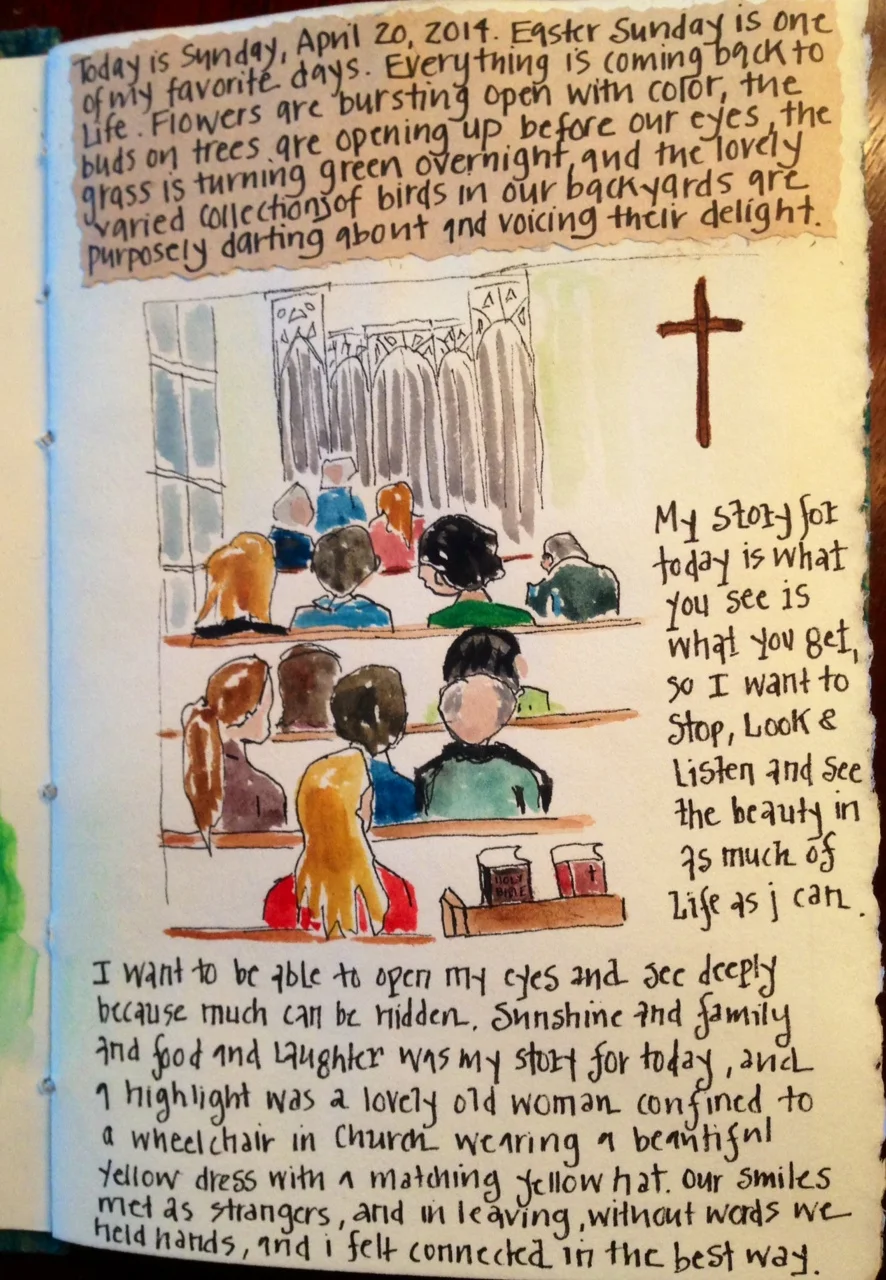 Today is Sunday, April 20, 2014. Easter Sunday is one
of my favorite days. Everything is coming back to
Life. Flowers are bursting open with color, the
buds on trees are opening up before our eyes, the
grass is turning green overnight, and the lovely
varied collections of birds in our backyards are
purposely darting about and voicing their delight.
My story for
today is what
you see is
what you get,
so I want to
Stop, Look &
Listen and see
the beauty in
as much of
Life as j can.
HOLY
BIBLE
I want to be able to open my eyes and see deeply
because much can be hidden. Sunshine and family
and food and Laughter was my story for today, and
a highlight was a lovely old woman confined to
a wheelchair in Church wearing a beautiful
yellow dress with a matching yellow hat. Our smiles
met as strangers, and in leaving, without words we
held hands, and i felt connected in the best way.